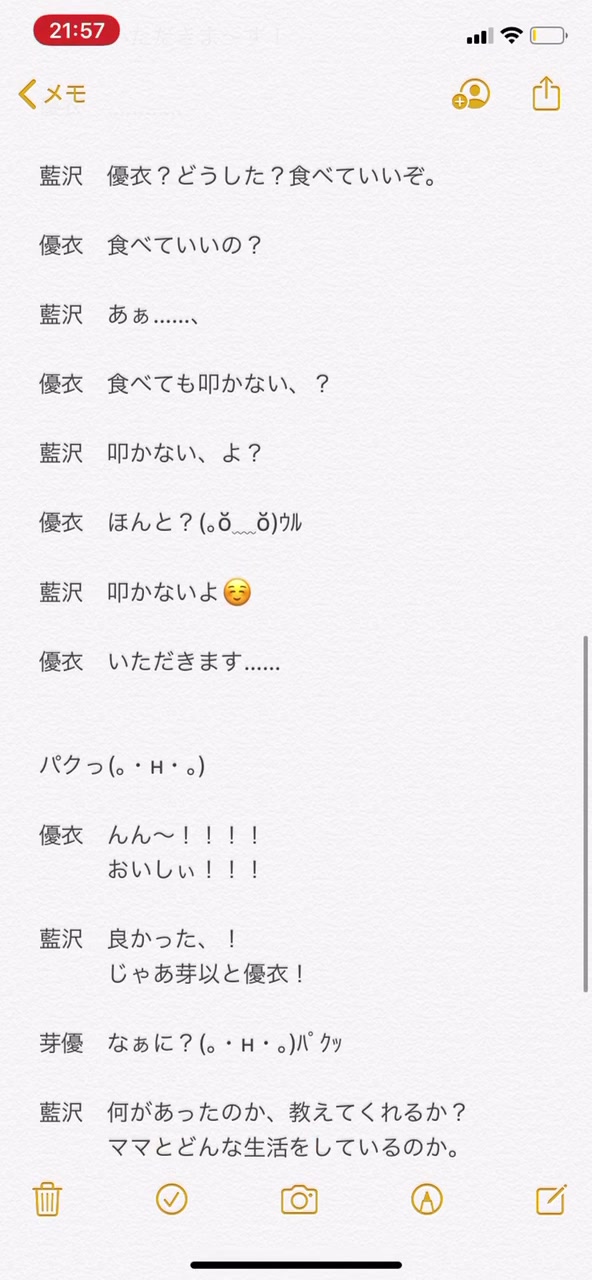 21:57
メモ
藍沢　優衣？どうした？食べていいぞ。
優衣　食べていいの？
藍沢　あぁ......、
優衣　食べても叩かない、？
藍沢　叩かない、よ？
優衣　ほんと？(｡ŏ﹏ŏ)ｳﾙ
藍沢　叩かないよ☺️
優衣　いただきます......
パクっ(｡・н・｡)
優衣　んん〜！！！！
おいしぃ！！！
藍沢　良かった、！
じゃあ芽以と優衣！
芽優　なぁに？(｡・н・｡)ﾊﾟｸｯ
藍沢　何があったのか、教えてくれるか？
ママとどんな生活をしているのか。